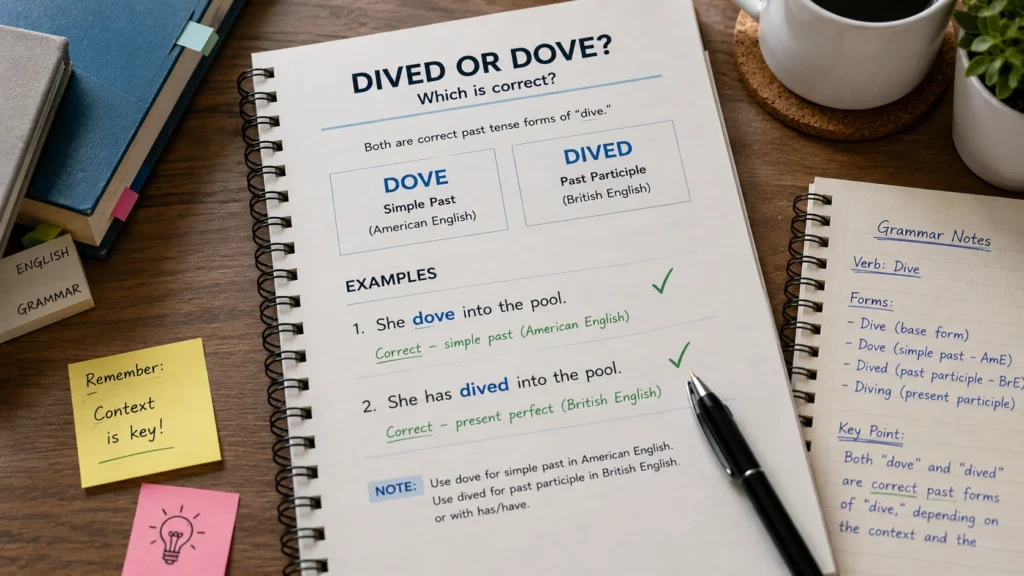 DIVED OR DOVE?
Which is correct?
Both are correct past tense forms of “dive.”
DOVE
Simple Past
(American English)
DIVED
Past Participle
(British English)
EXAMPLES
1. She dove into the pool.
Correct – simple past (American English)
2. She has dived into the pool.
Correct – present perfect (British English)
NOTE: Use dove for simple past in American English.
Use dived for past participle in British English.
or with has/have.
ENGLISH
GRAMMAR
Remember:
Context
is key!
Grammar Notes
Verb: Dive
Forms:
- Dive (base form)
- Dove (simple past - AmE)
- Dived (past participle - BrE)
- Diving (present participle)
Key Point:
Both “dove” and “dived”
are correct past forms
of “dive,” depending on
the context and the